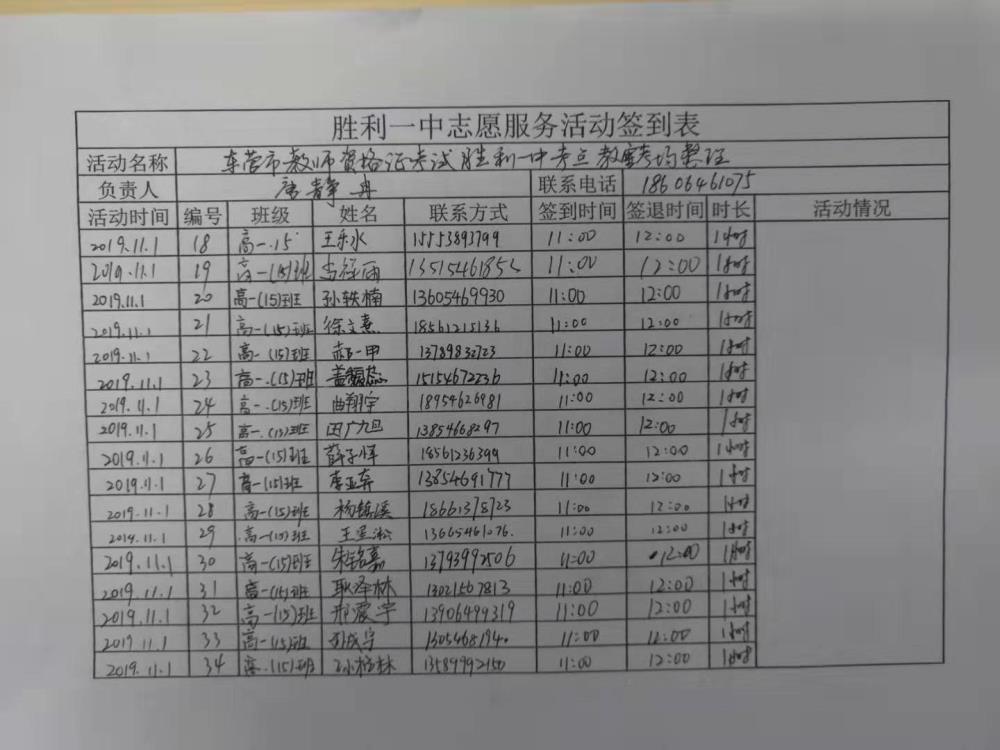 胜利一中志愿服务活动签到表
活动名称 东营市教师资格证考试胜利一中考点教室考场整理
负责人 唐静冉 联系电话 18606461075
活动时间 编号 班级 姓名 联系方式 签到时间 签退时间 时长 活动情况
2019.11.1 18 高一.15 王乐水 15553893799 11:00 12:00 1小时
2019.11.1 19 高一(15)班 11:00 12:00 1小时
2019.11.1 20 高一(15)班 孙轶楠 13605469930 11:00 12:00 1小时
2019.11.1 21 高一(15)班 徐文熹 18561215136 11:00 12:00 1小时
2019.11.1 22 高一(15)班 郝一甲 13789832723 11:00 12:00 1小时
2019.11.1 23 高一.(15)班 15154672236 11:00 12:00 1小时
2019.11.1 24 高一.(15)班 曲翔宇 18954626981 11:00 12:00 1小时
2019.11.1 25 高一.(15)班 田广九 13854668297 11:00 12:00 1小时
2019.11.1 26 高一(15)班 薛子恽 18561236399 11:00 12:00 1小时
2019.11.1 27 高一(15)班 李亚奔 13854691777 11:00 12:00 1小时
2019.11.1 28 高一(15)班 杨铭溪 18661378723 11:00 12:00 1小时
2019.11.1 29 高一(15)班 王星淞 13665461076 11:00 12:00 1小时
2019.11.1 30 高一(15)班 朱铭嘉 13793992506 11:00 12:00 1小时
2019.11.1 31 高一(15)班 耿泽林 13021567813 11:00 12:00 1小时
2019.11.1 32 高一(15)班 邢震宇 13906499319 11:00 12:00 1小时
2019.11.1 33 高一(15)班 11:00 12:00 1小时
2019.11.1 34 高一(15)班 13589992150 11:00 12:00 1小时